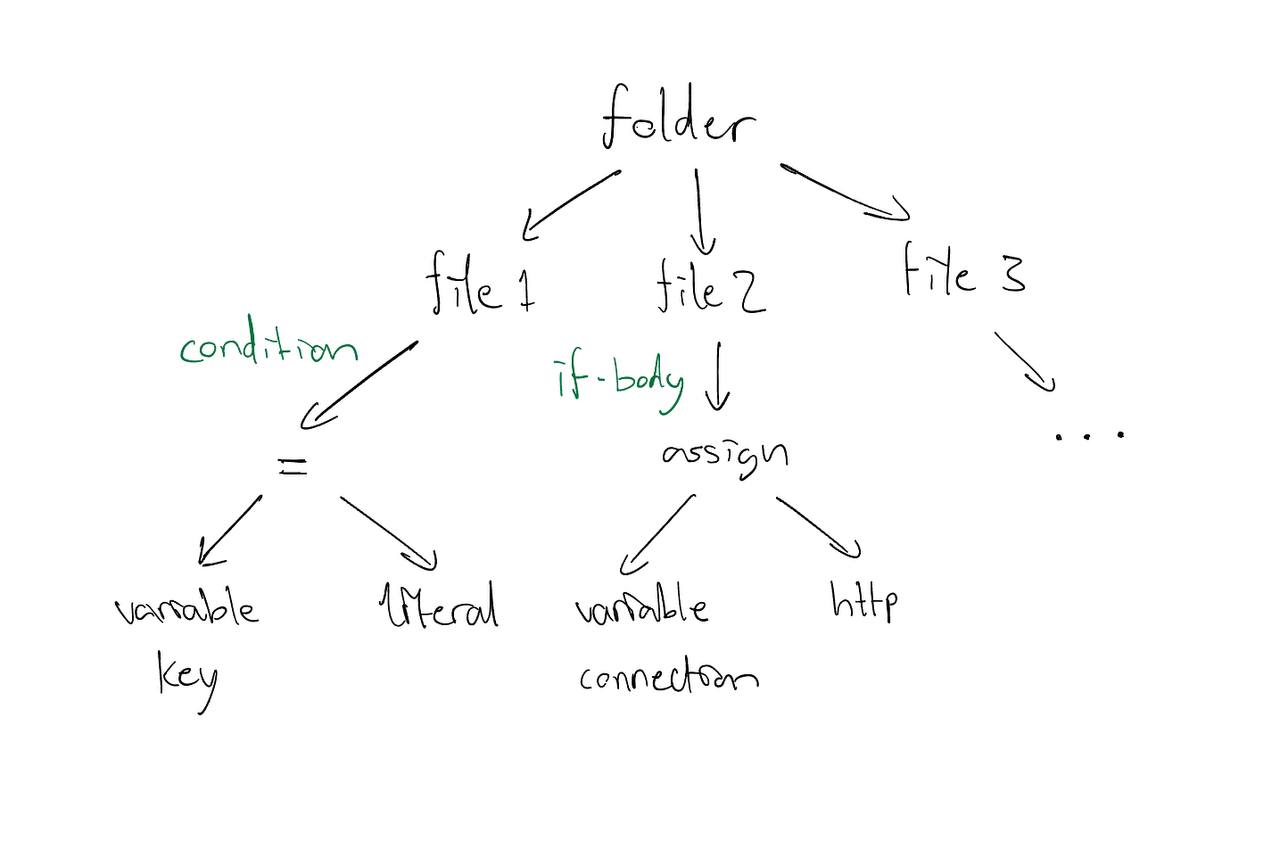 folder
file 1
file 2
file 3
condition
if-body
=
assign
...
variable
key
literal
variable
connection
http